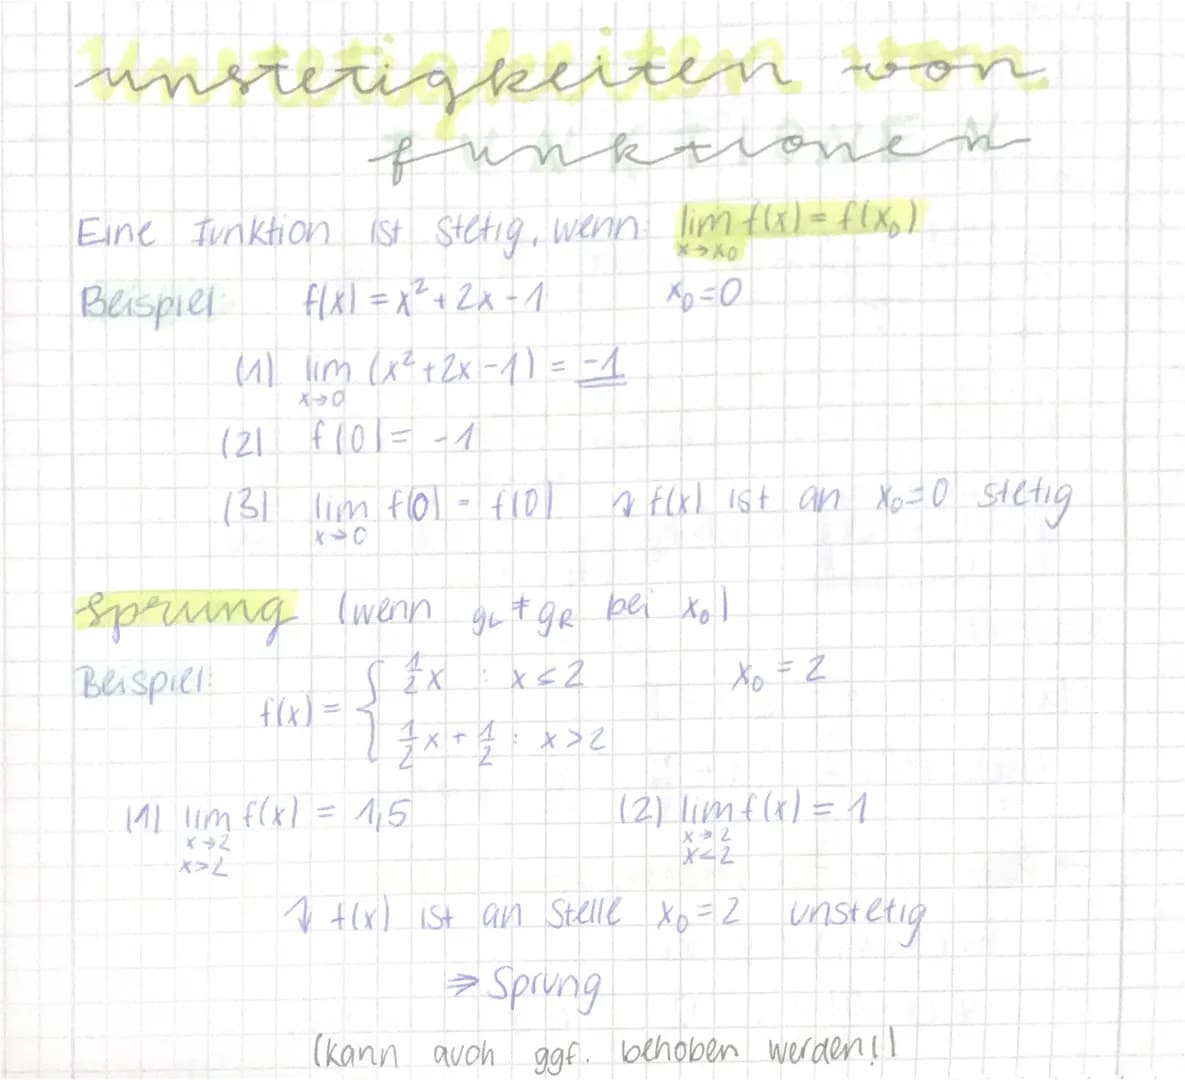 unstetigkeiten von
funktionen
Eine Funktion ist stetig, wenn: lim f(x) = f(x₀)
x→x₀
Beispiel f(x) = x² + 2x - 1 x₀ = 0
(1) lim (x² + 2x - 1) = -1
x→0
(2) f(0) = -1
(3) lim f(0) = f(0) ↴ f(x) ist an x₀=0 stetig
x→0
Sprung (wenn gL ≠ gR bei x₀)
Beispiel: f(x) = { ½x : x ≤ 2 x₀ = 2
½x + ½ : x > 2
(1) lim f(x) = 1,5 (2) lim f(x) = 1
x→2 x→2
x>2 x<2
↴ f(x) ist an Stelle x₀=2 unstetig
⇒ Sprung
(kann auch ggf. behoben werden!)